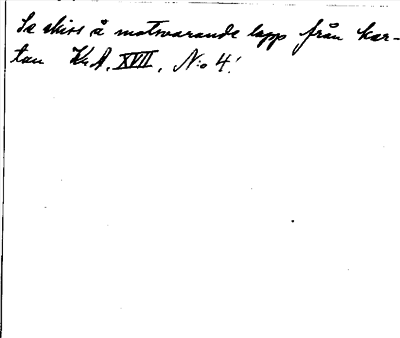 Se skiss å motsvarande lapp från kar-
tan K.A. XVII, N:o 4!